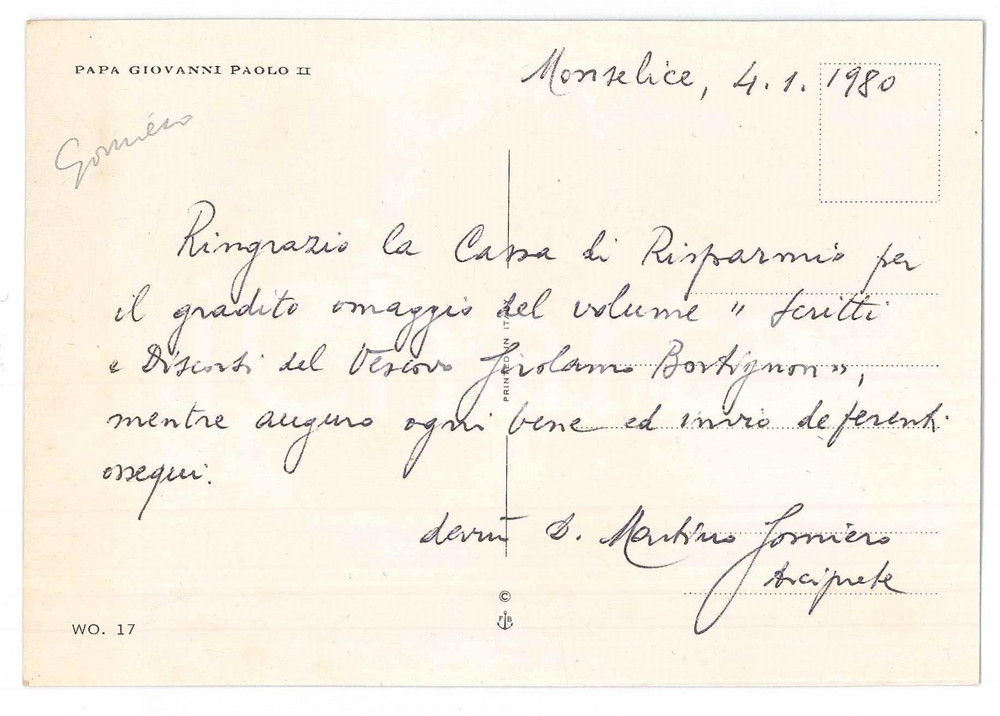 PAPA GIOVANNI PAOLO II
Monselice, 4.1.1980
Gomiero
Ringrazio la Cassa di Risparmio per
il gradito omaggio del volume " Scritti
e Discorsi del Vescovo Girolamo Bortignon ",
mentre auguro ogni bene ed invio deferenti
ossequi.
D. Martino Gomiero
Arciprete
PRINTED IN ITALY
©
FB
WO. 17